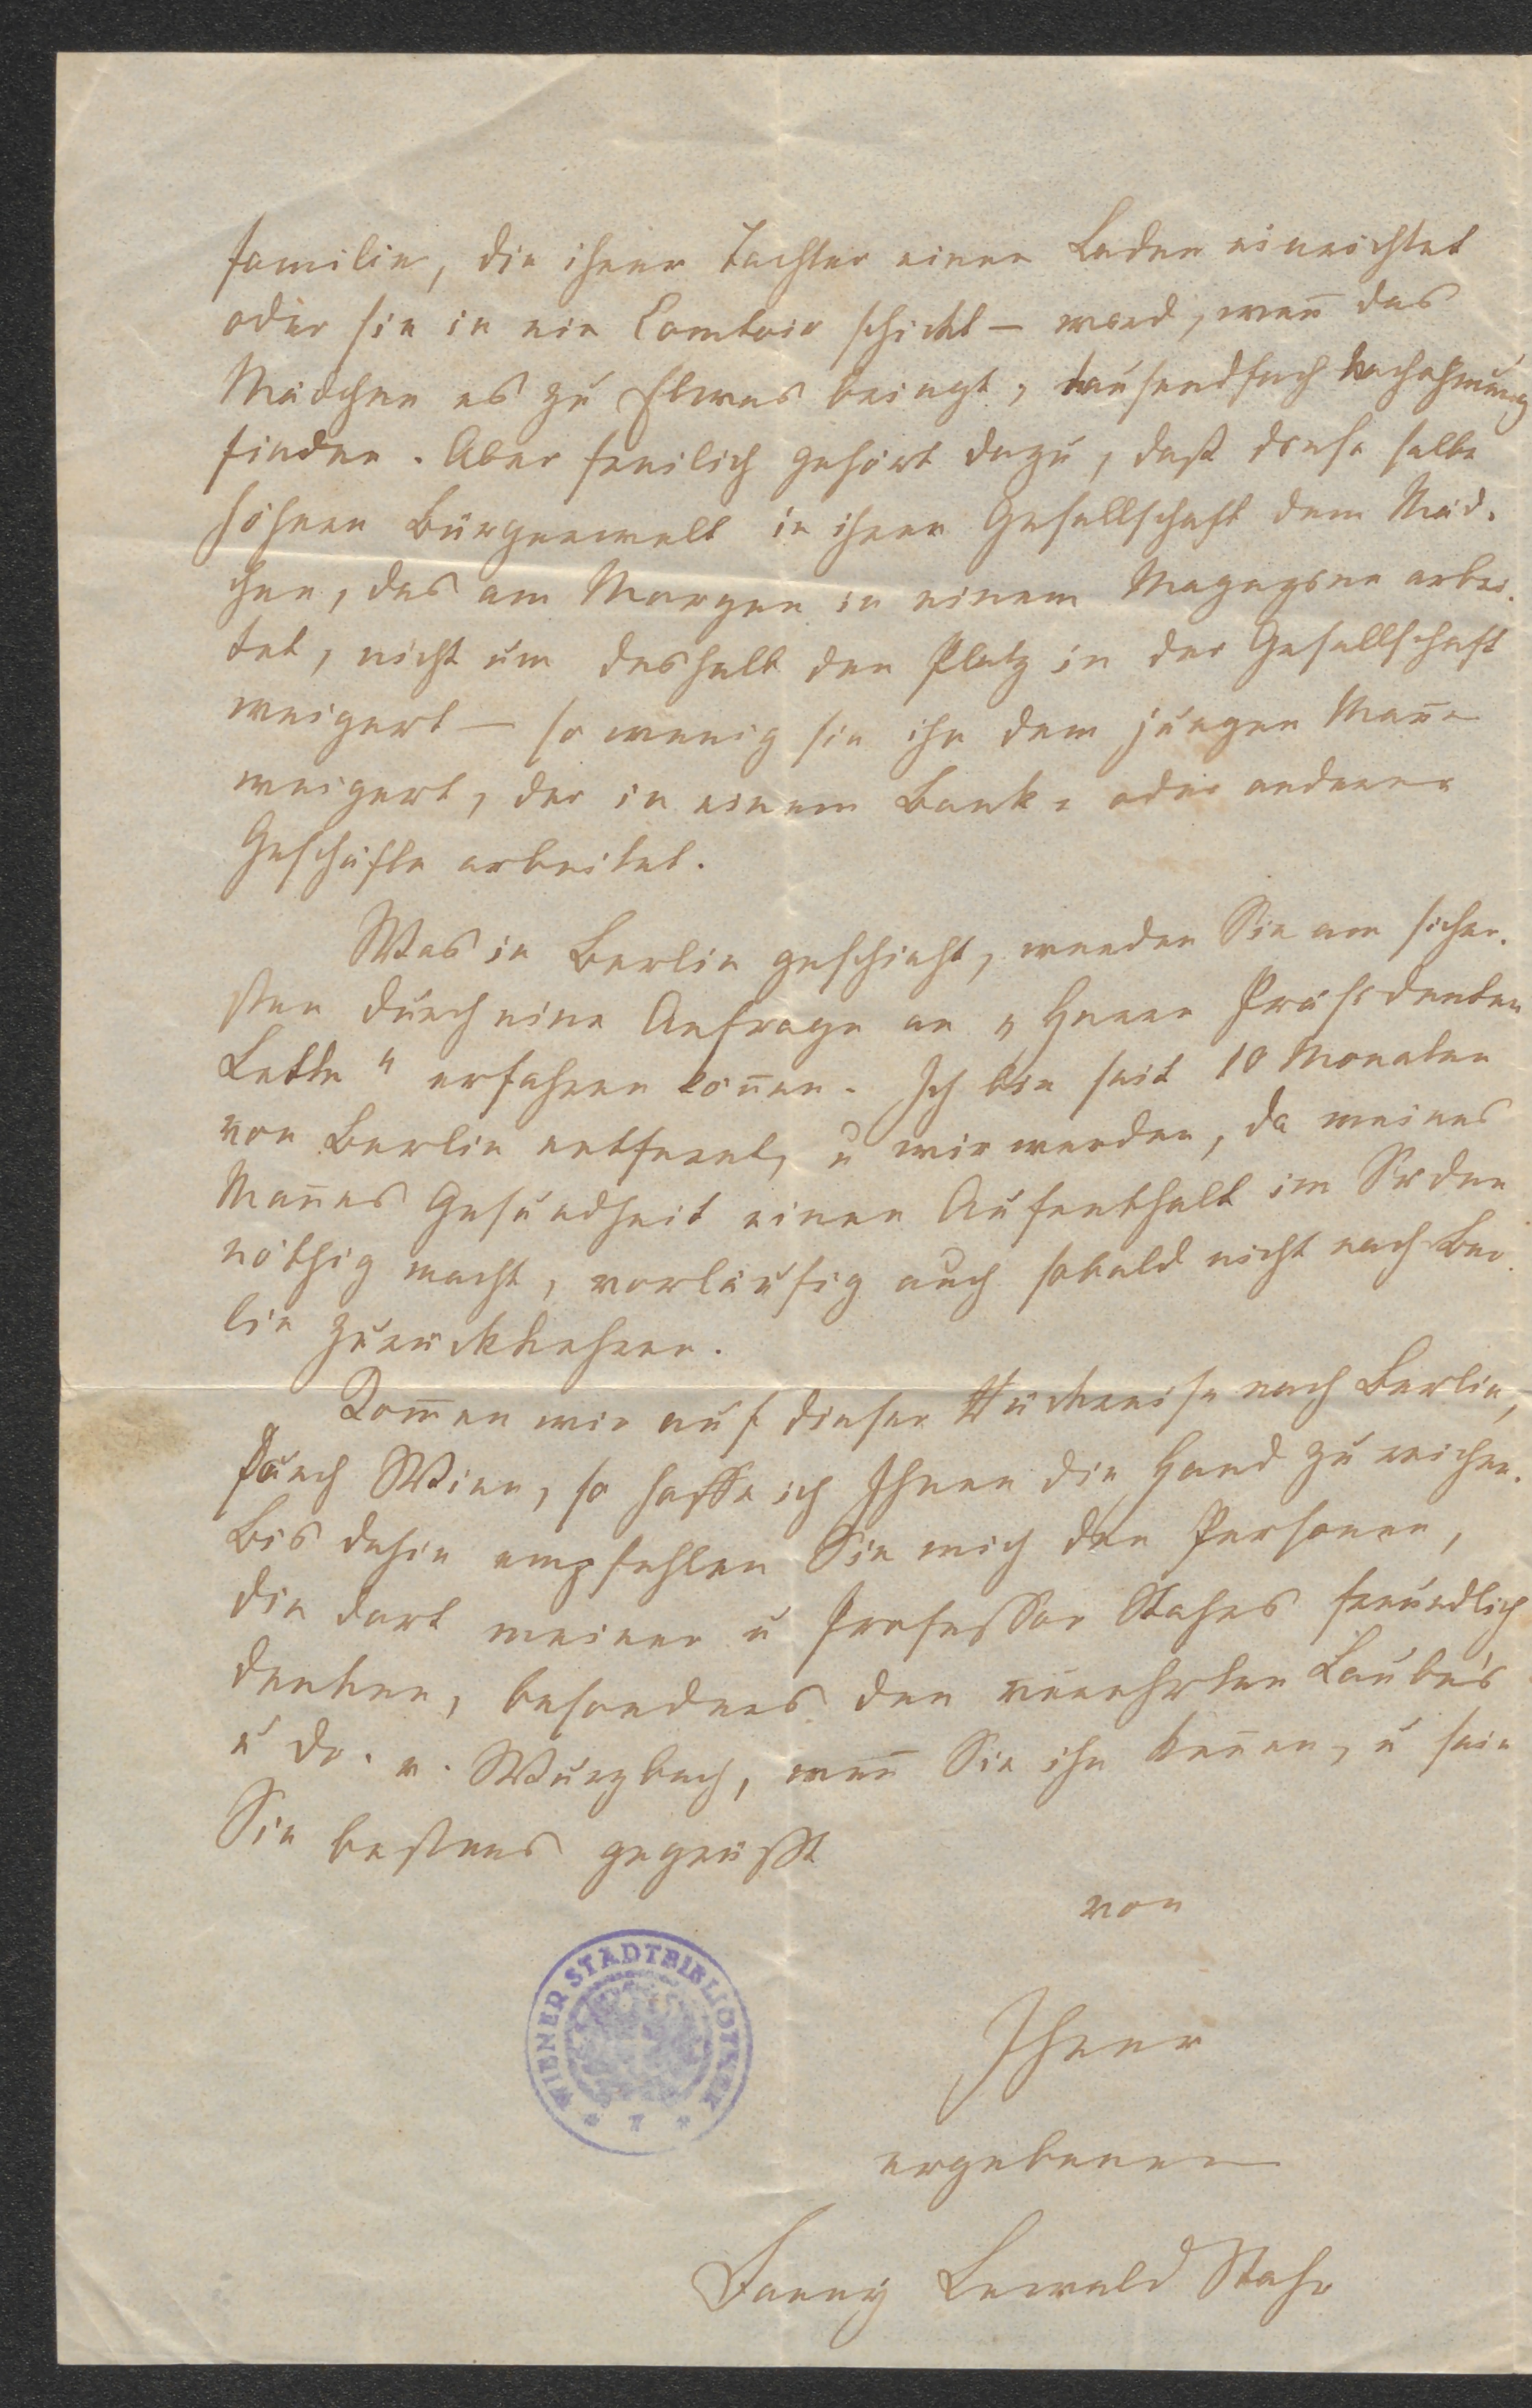 familie, die ihrer Tochter einen Laden einrichtet
oder sie in ein Comtoir schickt — wird, wen̅ das
Mädchen es zu Etwas bringt, tausendfach Nachahmung
finden. Aber freilich gehört dazu, daß diese selbe
höhere Bürgerwelt in ihrer Gesellschaft dem Mäd-
chen, das am Morgen in einem Magazine arbei-
tet, nicht um deshalb den Platz in der Gesellschaft
weigert — so wenig sie ihn dem jungen Man̅e
weigert, der in einem Bank- oder anderen
Geschäfte arbeitet.
Was in Berlin geschieht, werden Sie am sicher-
sten durch eine Anfrage an „Herrn Präsidenten
Lette" erfahren kön̅en. Ich bin seit 10 Monaten
von Berlin entfernt, u wir werden, da meines
Man̅es Gesundheit einen Aufenthalt im Süden
nöthig macht, vorläufig auch sobald nicht nach Ber-
lin zurückkehren.
Kom̅en wir auf dieser Rückreise nach Berlin,
durch Wien, so hoffe ich Ihnen die Hand zu reichen.
Bis dahin empfehlen Sie mich den Personen,
die dort meiner u Professor Stahrs freundlich
denken, besonders den verehrten Laube's
u Dr. v. Wurzbach, wen̅ Sie ihn ken̅en, u sein
Sie bestens gegrüßt
von
Ihrer
ergebenen
Fanny Lewald Stahr
WIENER STADTBIBLIOTHEK